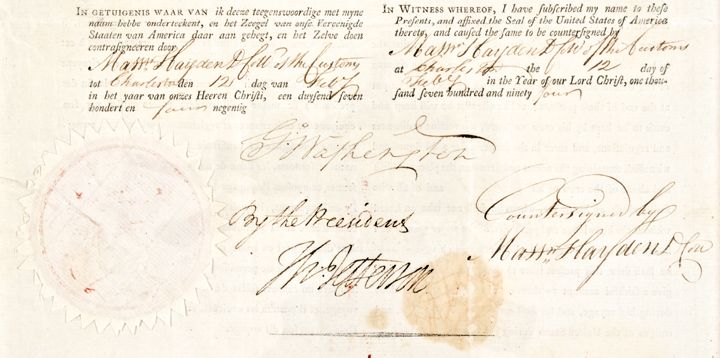 IN GETUIGENIS WAAR VAN ik deeze teegenswoordige met myne
naam hebbe onderteekent, en het Zeegel van onse Vereenigde
Staaten van America daar aan gehegt, en het Zelve doen
contrasigneeren door
Masn. Hayden D Coll of the Customs
tot Charleston den 12 dag van Feby
in het jaar van onzes Heeren Christi, een duysend seven
hondert en four negentig
IN WITNESS WHEREOF, I have subscribed my name to these
Presents, and affixed the Seal of the United States of America
thereto, and caused the same to be countersigned by
Masn. Hayden D Coll of the Customs
at Charleston the 12 day of
Feby in the Year of our Lord Christ, one thou-
sand seven hundred and ninety four
Go. Washington
By the President
Th. Jefferson
Countersigned by
Masn. Hayden D Coll